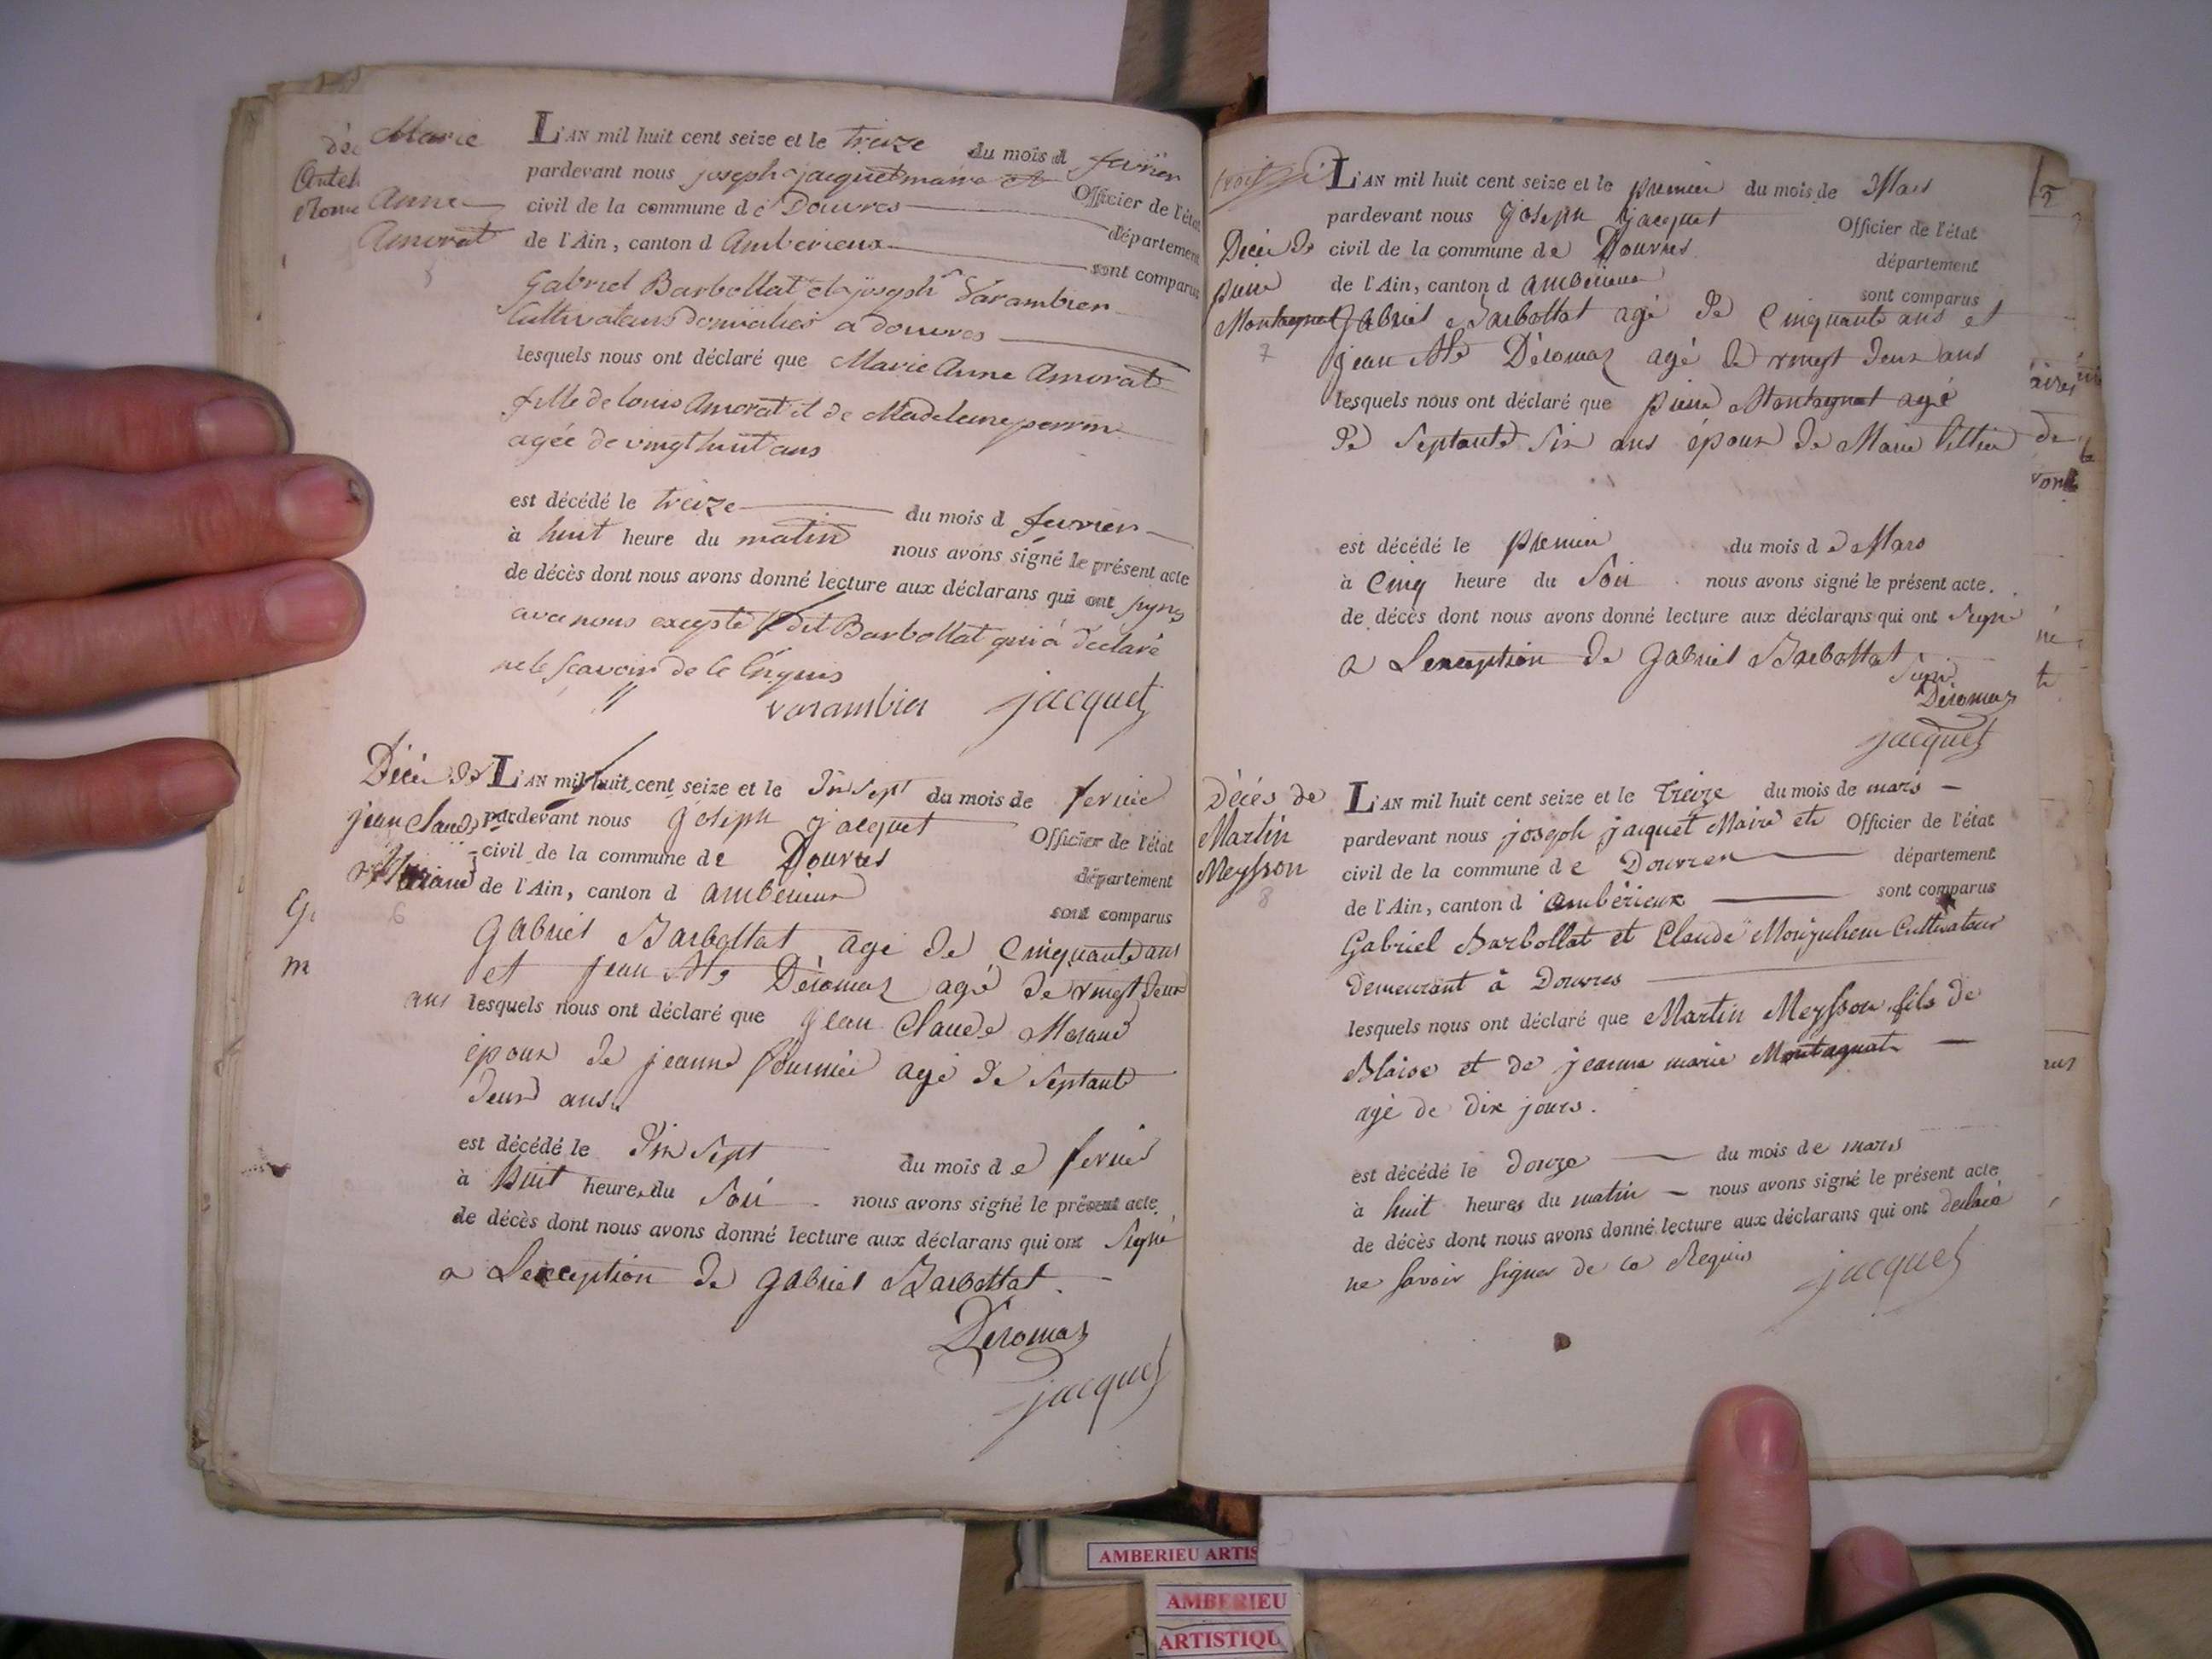 Marie
Anne
Amorat
L'AN mil huit cent seize et le treize du mois d fevrier
pardevant nous joseph jacquet maire et Officier de l'état
civil de la commune de Douvres département
de l'Ain, canton d Amberieux sont comparus
Gabriel Barbollat et joseph Varambier
Cultivateurs domicilies a douvres
lesquels nous ont déclaré que Marie Anne Amorat
fille de louis Amorat et de Madeleine perrin
agée de vingt huit ans
est décédé le treize du mois d fevrier
à huit heure du matin nous avons signé le présent acte
de décès dont nous avons donné lecture aux déclarans qui ont signé
avec nous excepté le dit Barbollat qui à déclaré
ne le scavoir de ce requis
varambier jacquet
Décè de
jean Claude
6
L'AN mil huit cent seize et le Dix Sept du mois de fevrié
pardevant nous Joseph jacquet Officier de l'état
civil de la commune de Douvres département
de l'Ain, canton d ambérieux sont comparus
Gabriel Barbollat agé de Cinquante ans
et jean Bte Déromaz agé de vingt deux
ans lesquels nous ont déclaré que jean Claude Morand
époux de jeanne fournié agé de Septante
deux ans
est décédé le Dix Sept du mois de fevrié
à huit heure du Soir nous avons signé le présent acte
de décès dont nous avons donné lecture aux déclarans qui ont Signé
a Lexception de gabriel Barbollat
Déromaz
jacquet
5
Décè de
pierre
Montagnat
7
L'AN mil huit cent seize et le premier du mois de Mars
pardevant nous Joseph jacquet Officier de l'état
civil de la commune de Douvres département
de l'Ain, canton d ambérieux sont comparus
Gabriel Barbollat agé de Cinquante ans et
jean Bte Déromaz agé de vingt deux ans
lesquels nous ont déclaré que pierre Montagnat agé
de Septante Six ans époux de Marie
est décédé le premier du mois de Mars
à Cinq heure du Soir nous avons signé le présent acte.
de décès dont nous avons donné lecture aux déclarans qui ont Signé
a Lexception de gabriel Barbollat
Déromaz
jacquet
Décès de
Martin
Meysson
8
L'AN mil huit cent seize et le treize du mois de mars
pardevant nous joseph jacquet Maire et Officier de l'état
civil de la commune de Douvres département
de l'Ain, canton d'ambérieux sont comparus
Gabriel Barbollat et Claude Cultivateurs
demeurant à Douvres
lesquels nous ont déclaré que Martin Meysson fils de
Blaise et de jeanne marie Montagnat
agé de dix jours.
est décédé le douze du mois de mars
à huit heures du matin nous avons signé le présent acte
de décès dont nous avons donné lecture aux déclarans qui ont declaré
ne savoir signer de ce Requis
jacquet
AMBERIEU ARTIS
AMBERIEU
ARTISTIQU